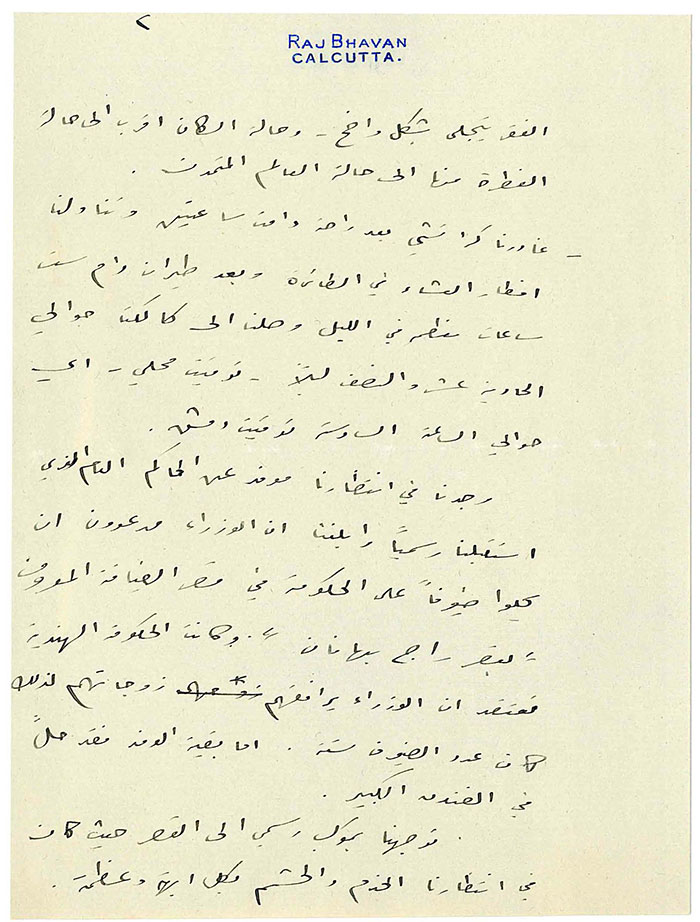 ٢
RAJ BHAVAN
CALCUTTA.
الفقر يتجلى بشكل واضح - وحالة السكان اقرب الى حالة
الفطرة منها الى حالة العالم المتمدن .
- غادرنا كراتشي بعد راحة دامت ساعتين وتناولنا
افطار العشاء في الطائرة وبعد طيران دام ست
ساعات معظمه في الليل وصلنا الى كالكتا حوالي
الحادية عشر والنصف ليلاً - توقيت محلي - اي
حوالي الساعة السادسة توقيت دمشق .
وجدنا في انتظارنا موفد عن الحاكم العام الذي
استقبلنا رسمياً وابلغنا ان الوزراء مدعوون ان
يحلوا ضيوفاً على الحكومة في قصر الضيافة المعروف
" بقصر راج بهافان " . وكانت الحكومة الهندية
تعتقد ان الوزراء يرافقهم زوجاتهم لذلك
كان عدد الضيوف ستة . اما بقية الوفد فقد حلّ
في الفندق الكبير .
. توجهنا بموكب رسمي الى القصر حيث كان
في انتظارنا الخدم والحشم بكل ابهة وعظمة .